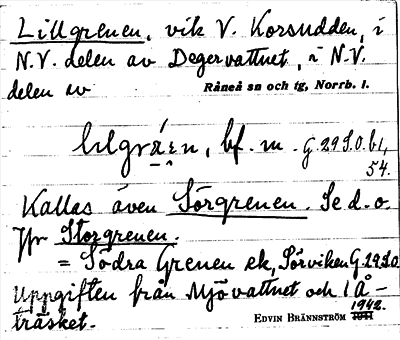 Lillgrenen, vik V. Korsudden, i
N.V. delen av Degervattnet, i N.V.
delen av Råneå sn och tg, Norrb. l.
bf. m. G. 29 S.O. b 1,
54.
Kallas även Sörgrenen. Se d. o.
Jfr Storgrenen.
= Södra Grenen ek, Sörviken G. 29 S.O
Uppgiften från Mjövattnet och 1 Å-
träsket. Edvin Brännström 1942.